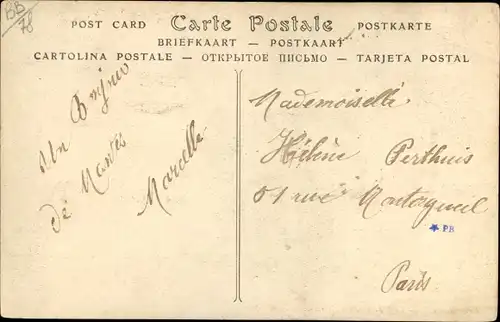 BB
78
POST CARD Carte Postale POSTKARTE
BRIEFKAART — POSTKAART
CARTOLINA POSTALE — ОТКРЫТОЕ ПИСЬМО — TARJETA POSTAL
Un Bonjour
de Mantes
Marcelle
Mademoiselle
Hélène Perthuis
61 rue Montorgueil
PB
Paris